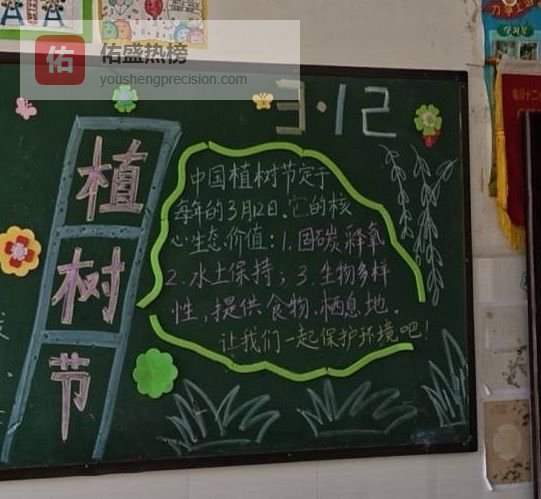 佑
佑盛热榜
youshengprecision.com
3·12
植
树
节
中国植树节定于
每年的3月12日.它的核
心生态价值:1.固碳释氧
2.水土保持;3.生物多样
性,提供食物,栖息地.
让我们一起保护环境吧!